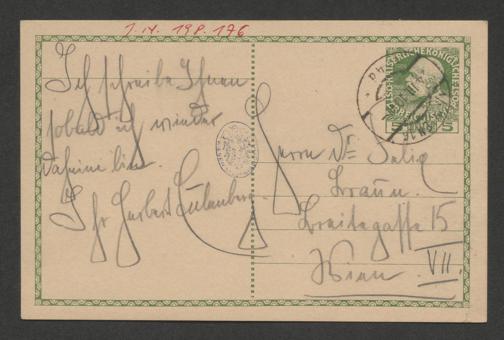 J. N. 198.176
Ich schreibe Ihnen
sobald ich wieder
daheim bin.
Ihr Herbert Eulenberg
KAISERLICHEKÖNIGLICHE
5 5
Herrn Dr. Felix
Braun.
Breitegasse 15
Wien VII.